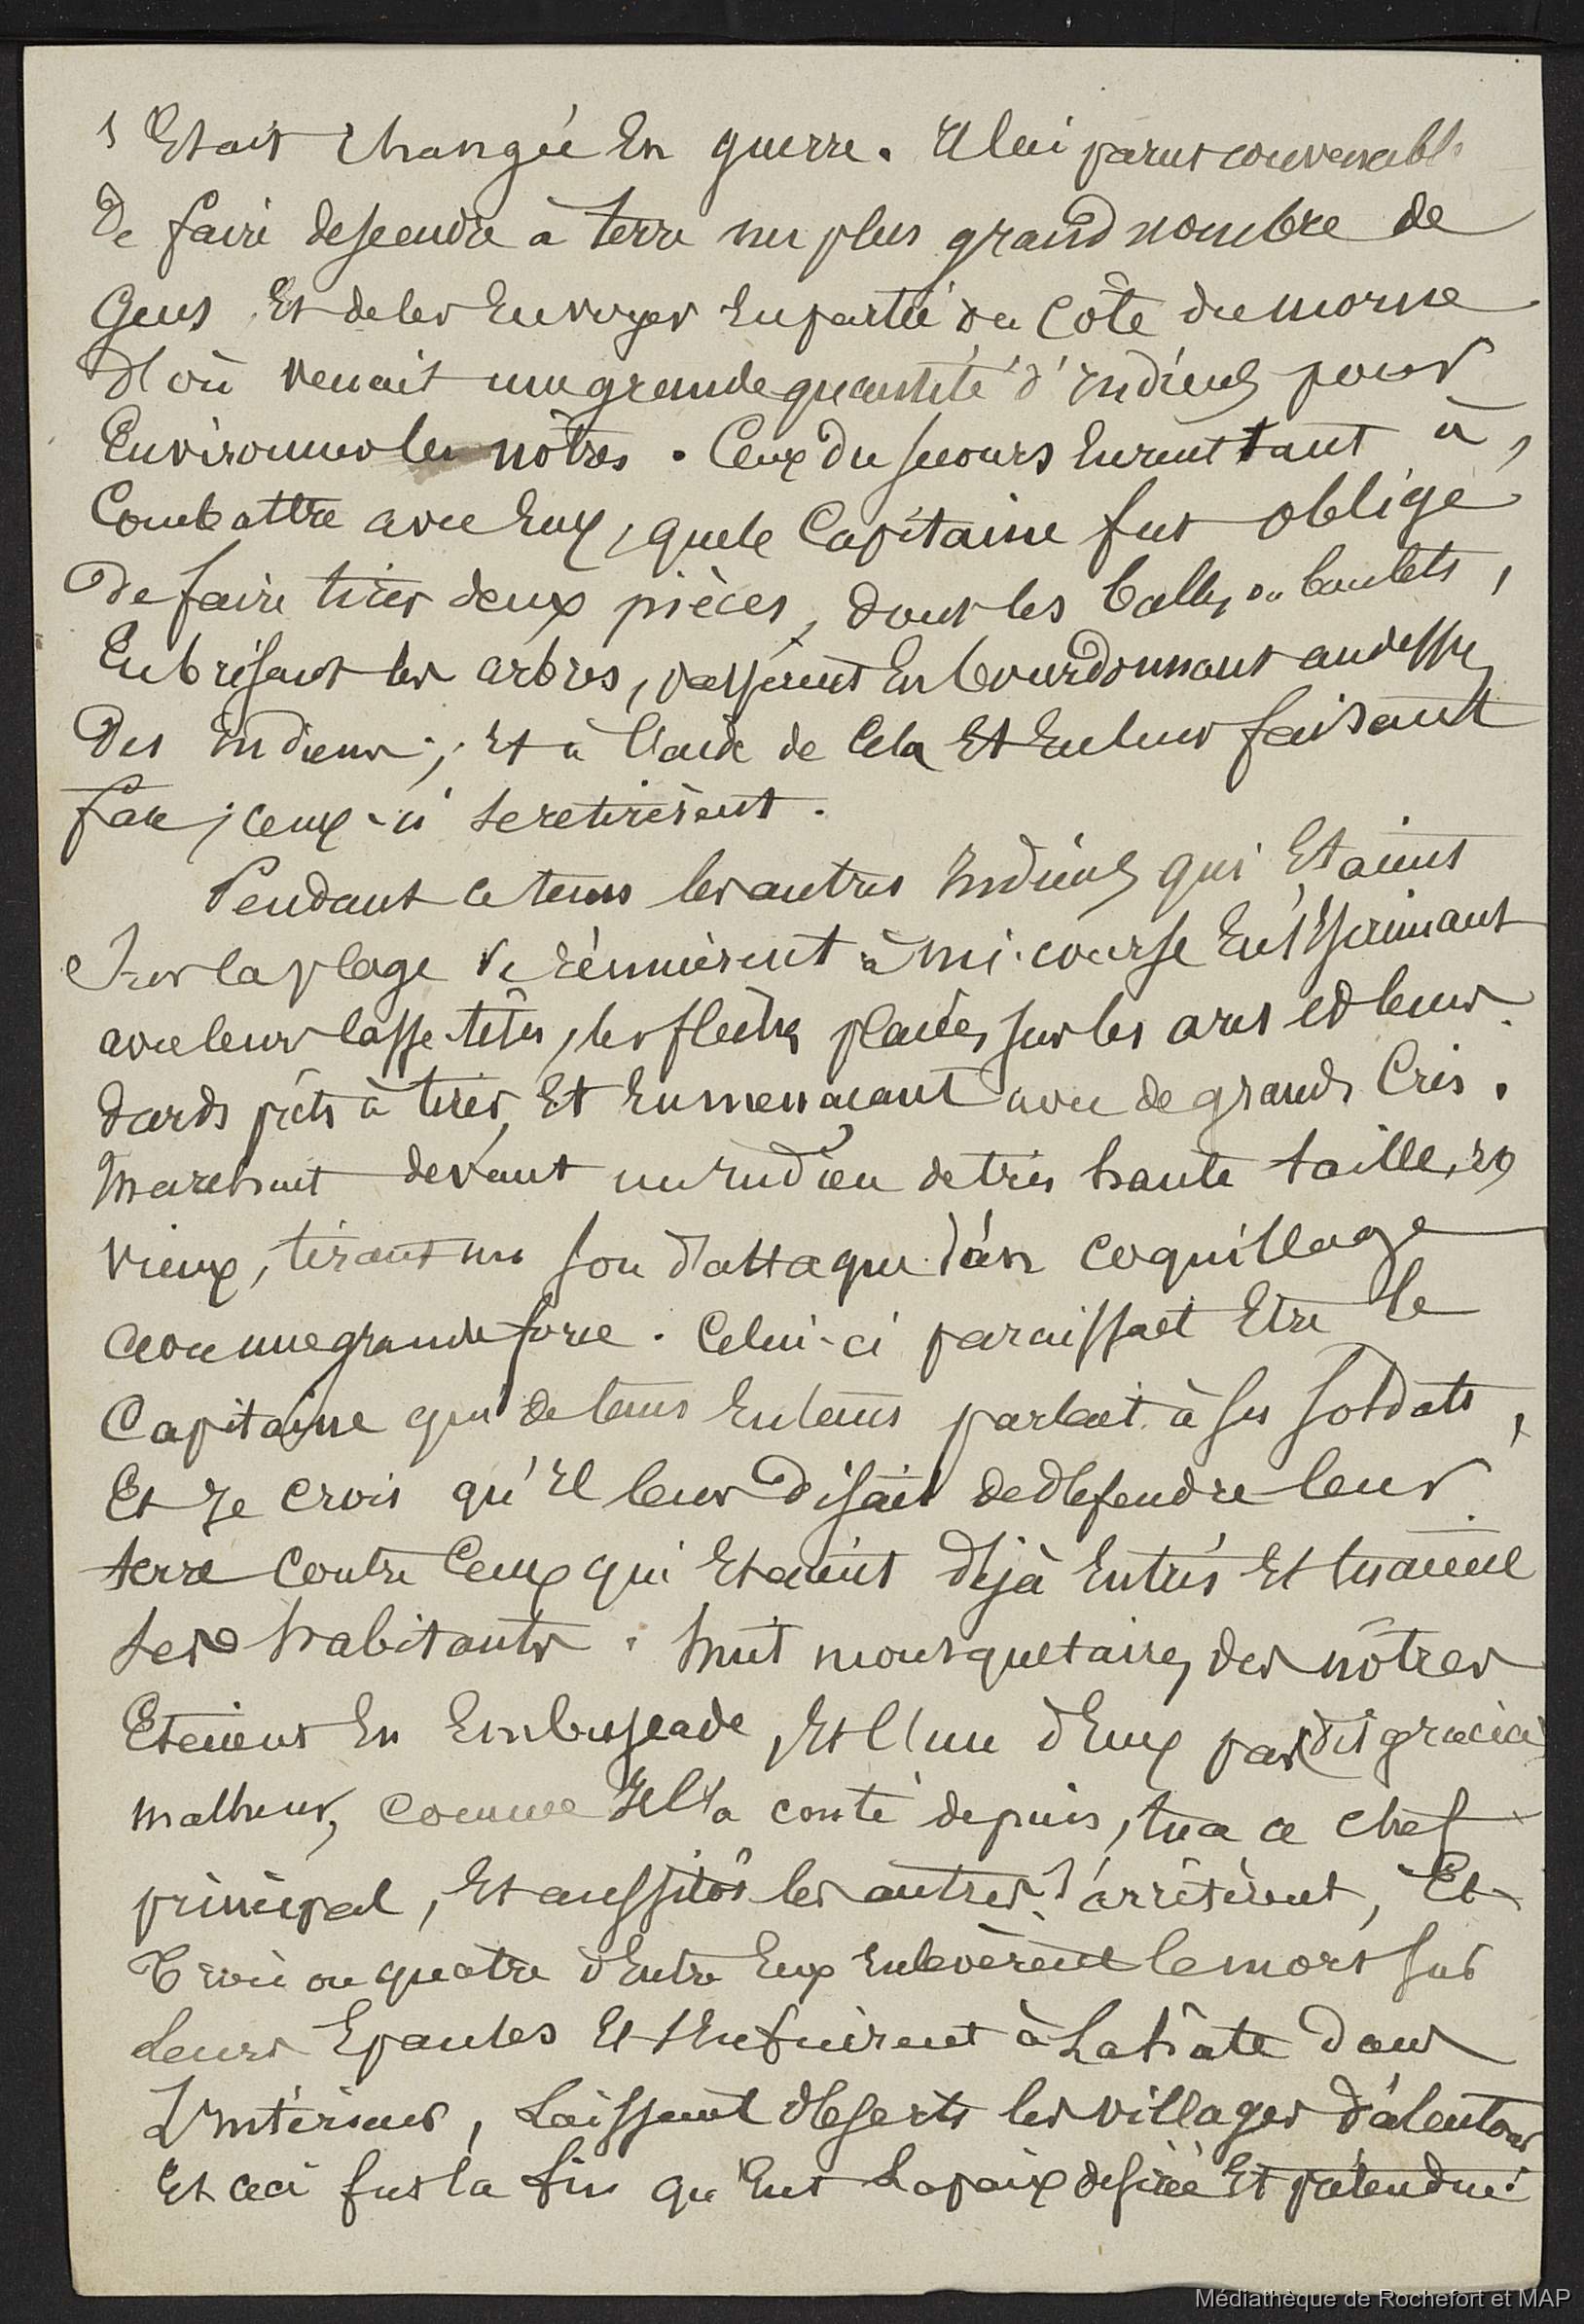 s'était changée en guerre. Il lui parut convenable
De faire descendre à terre un plus grand nombre de
Gens et de les envoyer en partie du côté du morne
D'où venait une grande quantité d'Indiens pour
Environner les nôtres. Ceux du secours eurent tant à
Combattre avec eux, que le Capitaine fut obligé
De faire tirer deux pièces, dont les balles ou boulets,
En brisant les arbres, passèrent en bourdonnant au dessus
Des indiens ; et à l'aide de cela et en leur faisant
face, ceux-ci se retirèrent.
Pendant ce tems les autres Indiens qui Etaient
Sur la plage se réunirent à mi-course en s'escrimant
avec leurs casse-têtes, les flèches placées sur les arcs et leurs
dards prêts à tirer, Et en menaçant avec de grands Cris.
Marchait devant un Indien de très haute taille, et
vieux, tirant un son d'attaque d'un coquillage
avec une grande force. Celui-ci paraissait Etre le
Capitaine qui de tems en tems parlait à ses soldats,
Et Je crois qu'Il leur Disait de défendre leur
terre contre Ceux qui Etaient déjà Entrés Et tuaient
ses habitants. huit mousquetaires des nôtres
Etaient En Embuscade, Et l'un d'Eux par (disgrâce)
malheur, comme Il l'a conté depuis, tua ce chef
principal, Et aussitôt les autres s'arrêtèrent, Et
Trois ou quatre d'Entre Eux enlevèrent le mort sur
Leurs Epaules Et s'enfuirent à La hâte dans
L'Intérieur, Laissant déserts les villages d'alentour
Et ceci fut la fin qu'Eut La paix désirée Et prétendue.
Médiathèque de Rochefort et MAP